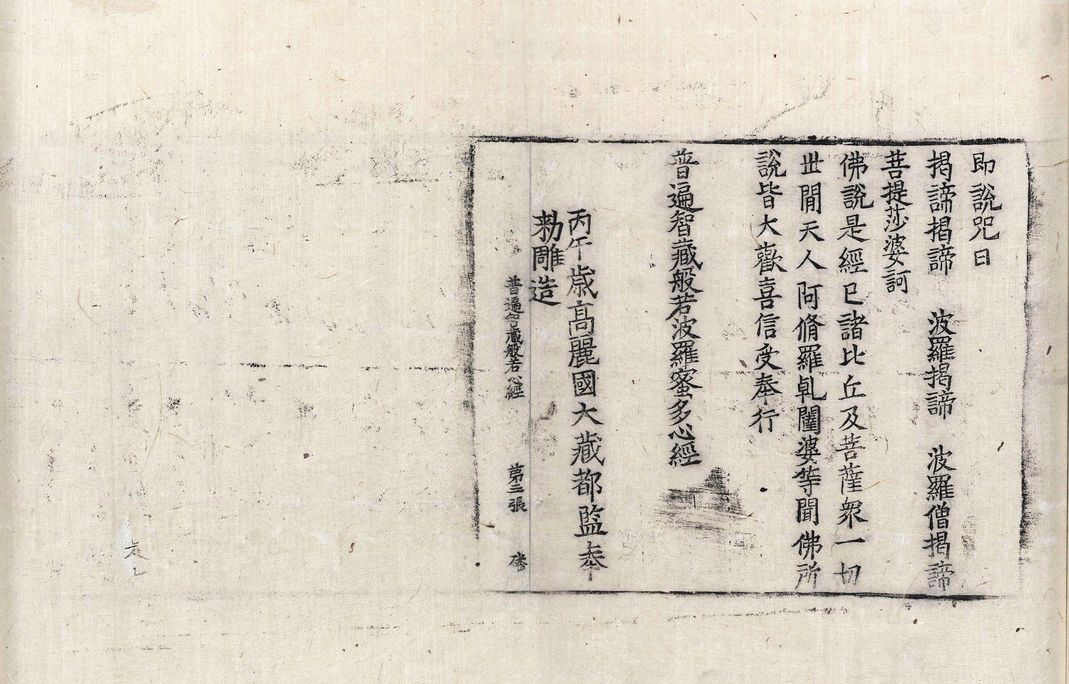 即說咒曰
揭諦揭諦　波羅揭諦　波羅僧揭諦
菩提莎婆訶
佛說是經已諸比丘及菩薩衆一切
世閒天人阿脩羅乹闥婆等聞佛所
說皆大歡喜信受奉行
普遍智藏般若波羅蜜多心經
丙午歲高麗國大藏都監奉
勑雕造
普遍智藏般若心經　第三張